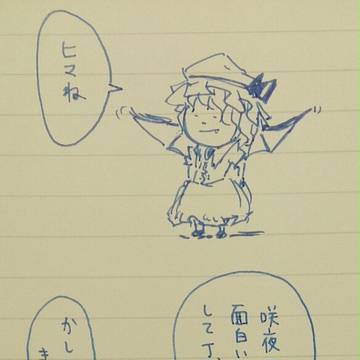 ヒマね
咲夜
面白い
して丁
かし